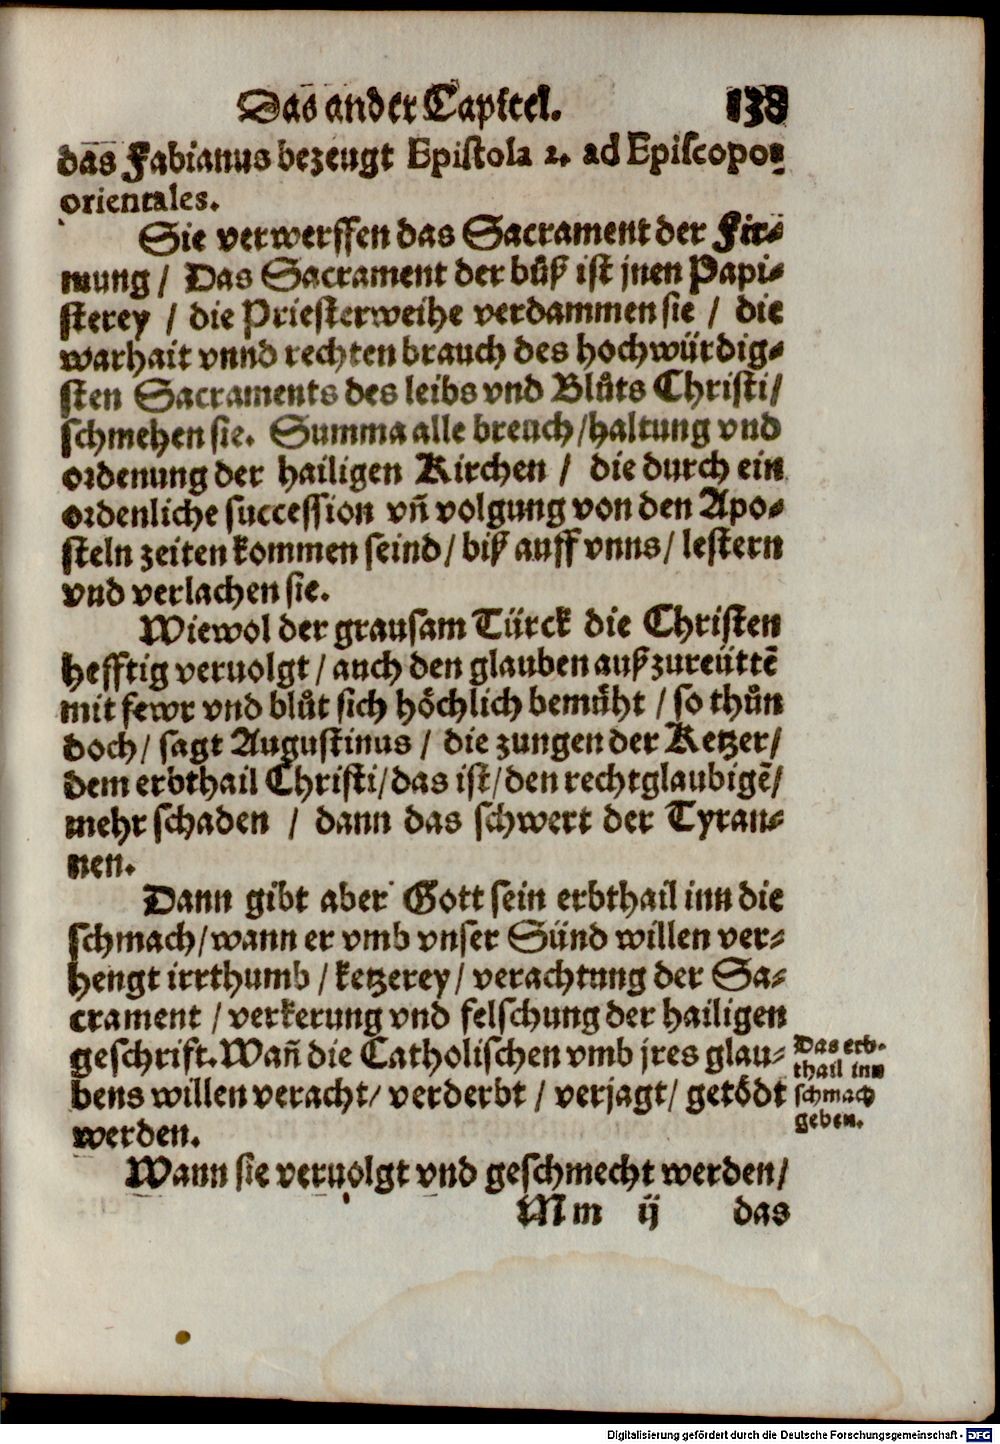 Das ander Capitel. 138
das Fabianus bezeugt Epistola 2. ad Episcopos
orientales.
Sie verwerffen das Sacrament der Fir-
mung / Das Sacrament der bůß ist jnen Papi-
sterey / die Priesterweihe verdammen sie / die
warhait vnnd rechten brauch des hochwürdig-
sten Sacraments des leibs vnd Blůts Christi /
schmehen sie. Summa alle breuch / haltung vnd
ordenung der hailigen Kirchen / die durch ein
ordenliche succession vñ volgung von den Apo-
steln zeiten kommen seind / biß auff vnns / lestern
vnd verlachen sie.
Wiewol der grausam Türck die Christen
hefftig veruolgt / auch den glauben außzureüttē
mit fewr vnd blůt sich höchlich bemüht / so thůn
doch / sagt Augustinus / die zungen der Ketzer /
dem erbthail Christi / das ist / den rechtglaubigē /
mehr schaden / dann das schwert der Tyran-
nen.
Dann gibt aber Gott sein erbthail inn die
schmach / wann er vmb vnser Sünd willen ver-
hengt irrthumb / ketzerey / verachtung der Sa-
crament / verkerung vnd felschung der hailigen
geschrift. Wañ die Catholischen vmb jres glau-
bens willen veracht / verderbt / verjagt / getödt
werden.
Das erb-
thail inn
schmach
geben.
Wann sie veruolgt vnd geschmecht werden /
Mm ij das
Digitalisierung gefördert durch die Deutsche Forschungsgemeinschaft - DFG